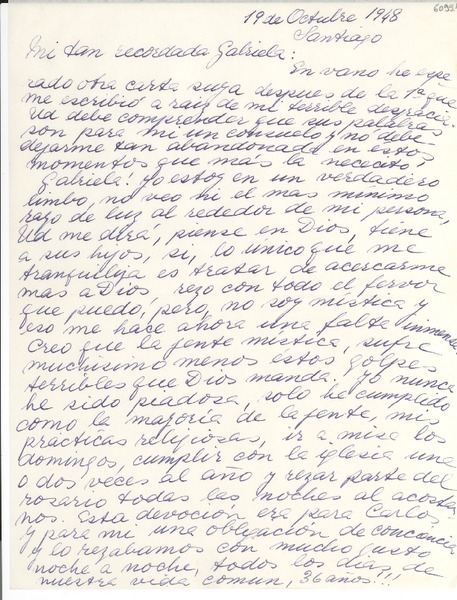 6099
19 de Octubre 1948
Santiago
Mi tan recordada Gabriela:
En vano he espe
rado otra carta suya despues de la 1ª que
me escribió a raiz de mi terrible desgracia.
Ud debe comprender que sus palabras
son para mi un consuelo y no debe
dejarme tan abandonada en estos
momentos que más la nececito
Gabriela! Yo estoy en un verdadero
limbo, no veo ni el mas minimo
rayo de luz al rededor de mi persona,
Ud me dirá, piense en Dios, tiene
a sus hijos, si, lo unico que me
tranquiliza es tratar de acercarme
mas a Dios, rezo con todo el fervor
que puedo, pero, no soy mistica y
eso me hace ahora una falta inmensa.
Creo que la jente mistica, sufre
muchisimo menos estos golpes
terribles que Dios manda. Yo nunca
he sido piadosa, solo he cumplido
como la mayoria de la jente, mis
prácticas religiosas, ir a misa los
domingos, cumplir con la iglesia una
o dos veces al año y rezar parte del
rosario todas las noches al acostar
nos. Esta devoción era para Carlos
y para mi una obligación de conciencia
y lo rezabamos con mucho gusto
noche a noche, todos los dias de
nuestra vida comun, 36 años!!!